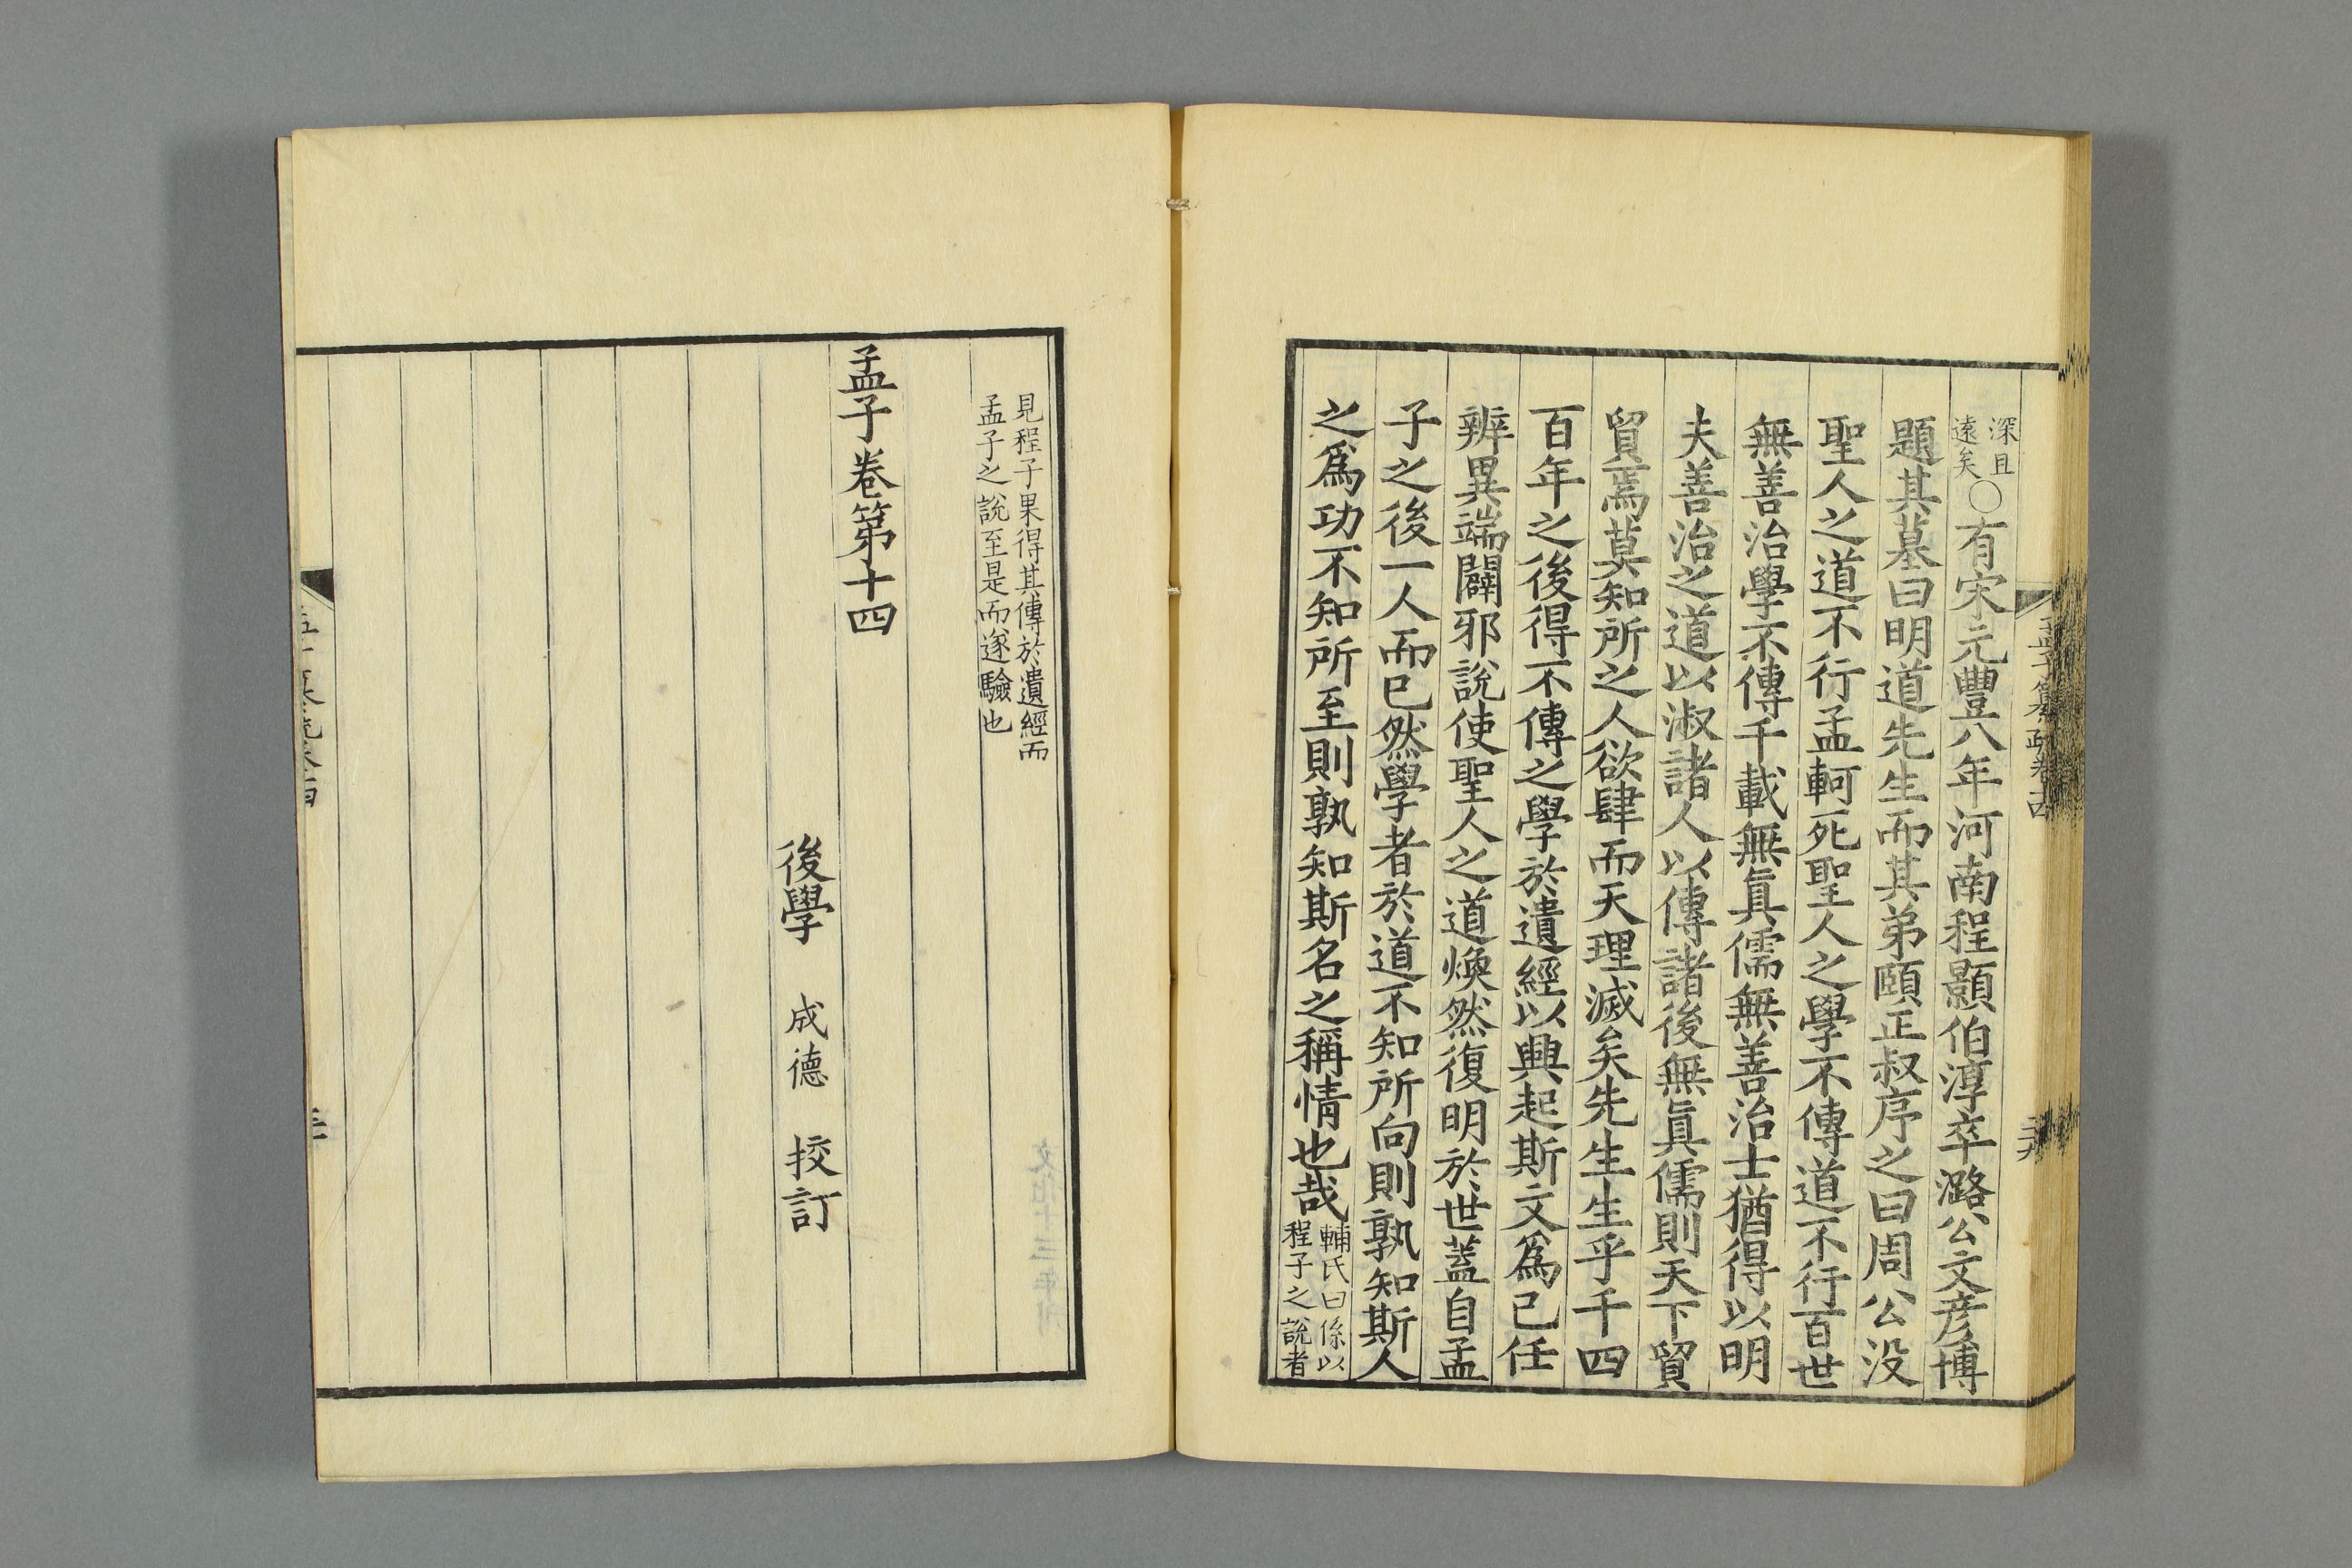 深且
遠矣
○有宋元豐八年河南程顥伯淳卒潞公文彦博
題其墓曰明道先生而其弟頤正叔序之曰周公没
聖人之道不行孟軻死聖人之學不傳道不行百世
無善治學不傳千載無眞儒無善治士猶得以明
夫善治之道以淑諸人以傳諸後無眞儒則天下貿
貿焉莫知所之人欲肆而天理滅矣先生生乎千四
百年之後得不傳之學於遺經以興起斯文爲已任
辨異端闢邪說使聖人之道煥然復明於世蓋自孟
子之後一人而已然學者於道不知所向則孰知斯人
之爲功不知所至則孰知斯名之稱情也哉
輔氏曰係以
程子之說者
見程子果得其傳於遺經而
孟子之說至是而遂驗也
孟子卷第十四
後學 成德 挍訂